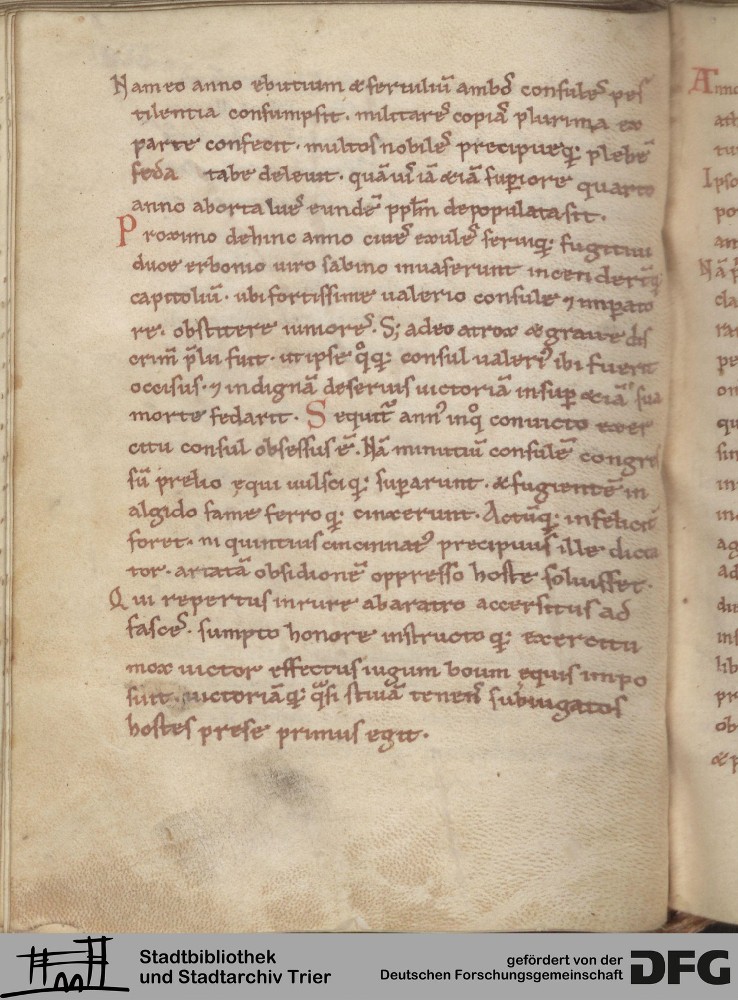 Nam eo anno ebutium & seruiliū ambos consules pes
tilentia consumpsit. militares copias plurima ex
parte confecit. multos nobiles precipueq; plebē
feda tabe deleuit. quāuis iā & iā superiore quarto
anno aborta lues eundē pplm depopulata sit.
Proximo dehinc anno ciues exules seruiq; fugitiui
duce erbonio uiro sabino inuaserunt incenderūtq;
capitoliū. ubi fortissime ualerio consule ⁊ imperato
re. obstitere iuniores. S; adeo atrox & graue dis
crim̄ p̄lii fuit. ut ipse qq; consul ualeri' ibi fuerit
occisus. ⁊ indignā de seruis uictoriā insup & iā sua
morte fedarit. Sequit̄ ann' in q̊ conuicto exer
citu consul obsessus ē. Nā minutiū consulē congres
sū prelio equi uulsciq; suparunt. & fugientē in
algido fame ferroq; cinxerunt. Actūq; infelicit̄
foret. ni quintius cincinnat' precipuus ille dicta
tor. artatā obsidionē oppresso hoste soluisset.
Qui repertus in rure ab aratro accersitus ad
fasces. sumpto honore instructoq; exercitu
mox uictor effectus iugum boum equis impo
suit. uictoriāq; q̄si stiuā tenens subiugatos
hostes pre se primus egit.
Stadtbibliothek
und Stadtarchiv Trier
gefördert von der
Deutschen Forschungsgemeinschaft
DFG